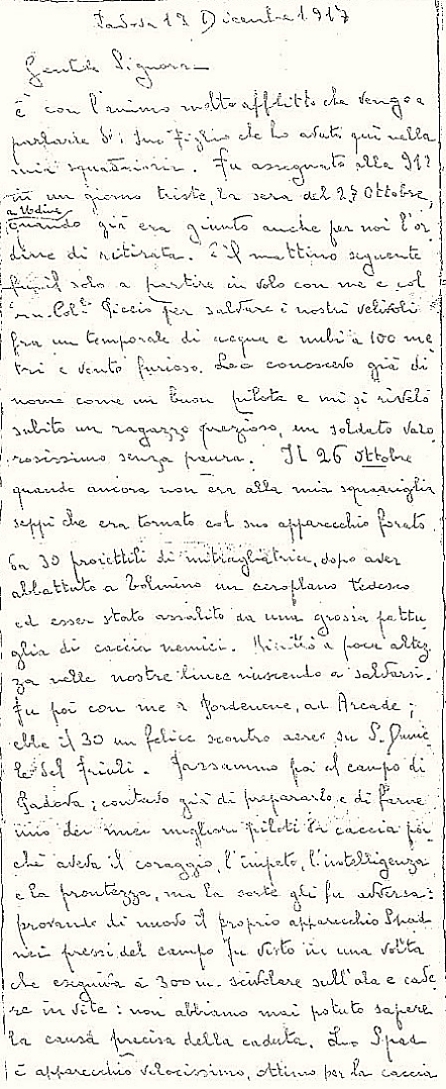 Padova 17 Dicembre 1917
Gentile Signora
è con l'animo molto afflitto che vengo a
parlarle di suo figlio che ho avuto qui nella
mia squadriglia. Fu assegnato alla 91ª
in un giorno triste, la sera del 27 Ottobre,
a Udine
quando già era giunto anche per noi l'or
dine di ritirata. E il mattino seguente
fu il solo a partire in volo con me e col
Ten. Col. Piccio per salvare i nostri velivoli
fra un temporale di acqua e nubi a 100 me
tri e vento furioso. Lo conoscevo già di
nome come un buon pilota e mi si rivelò
subito un ragazzo prezioso, un soldato valo
rosissimo senza paura. Il 26 ottobre
quando ancora non era alla mia squadriglia
seppi che era tornato col suo apparecchio forato
da 30 proiettili di mitragliatrice, dopo aver
abbattuto a Tolmino un aeroplano tedesco
ed esser stato assalito da una grossa pattu
glia di caccia nemici. Rientrò a poca altez
za nelle nostre linee riuscendo a salvarsi.
Fu poi con me a Pordenone, ad Arcade;
ebbe il 30 un felice scontro aereo su S. Danie
le del Friuli. Passammo poi al campo di
Padova; contavo già di prepararlo e di farne
uno dei miei migliori piloti da caccia poi
chè aveva il coraggio, l'impeto, l'intelligenza
e la prontezza, ma la sorte gli fu avversa:
provando di nuovo il proprio apparecchio Spad
nei pressi del campo fu visto in una volta
che eseguiva a 300 m. scivolare sull'ala e cade
re in vite: non abbiamo mai potuto sapere
la causa precisa della caduta. Lo Spad
è apparecchio velocissimo, ottimo per la caccia